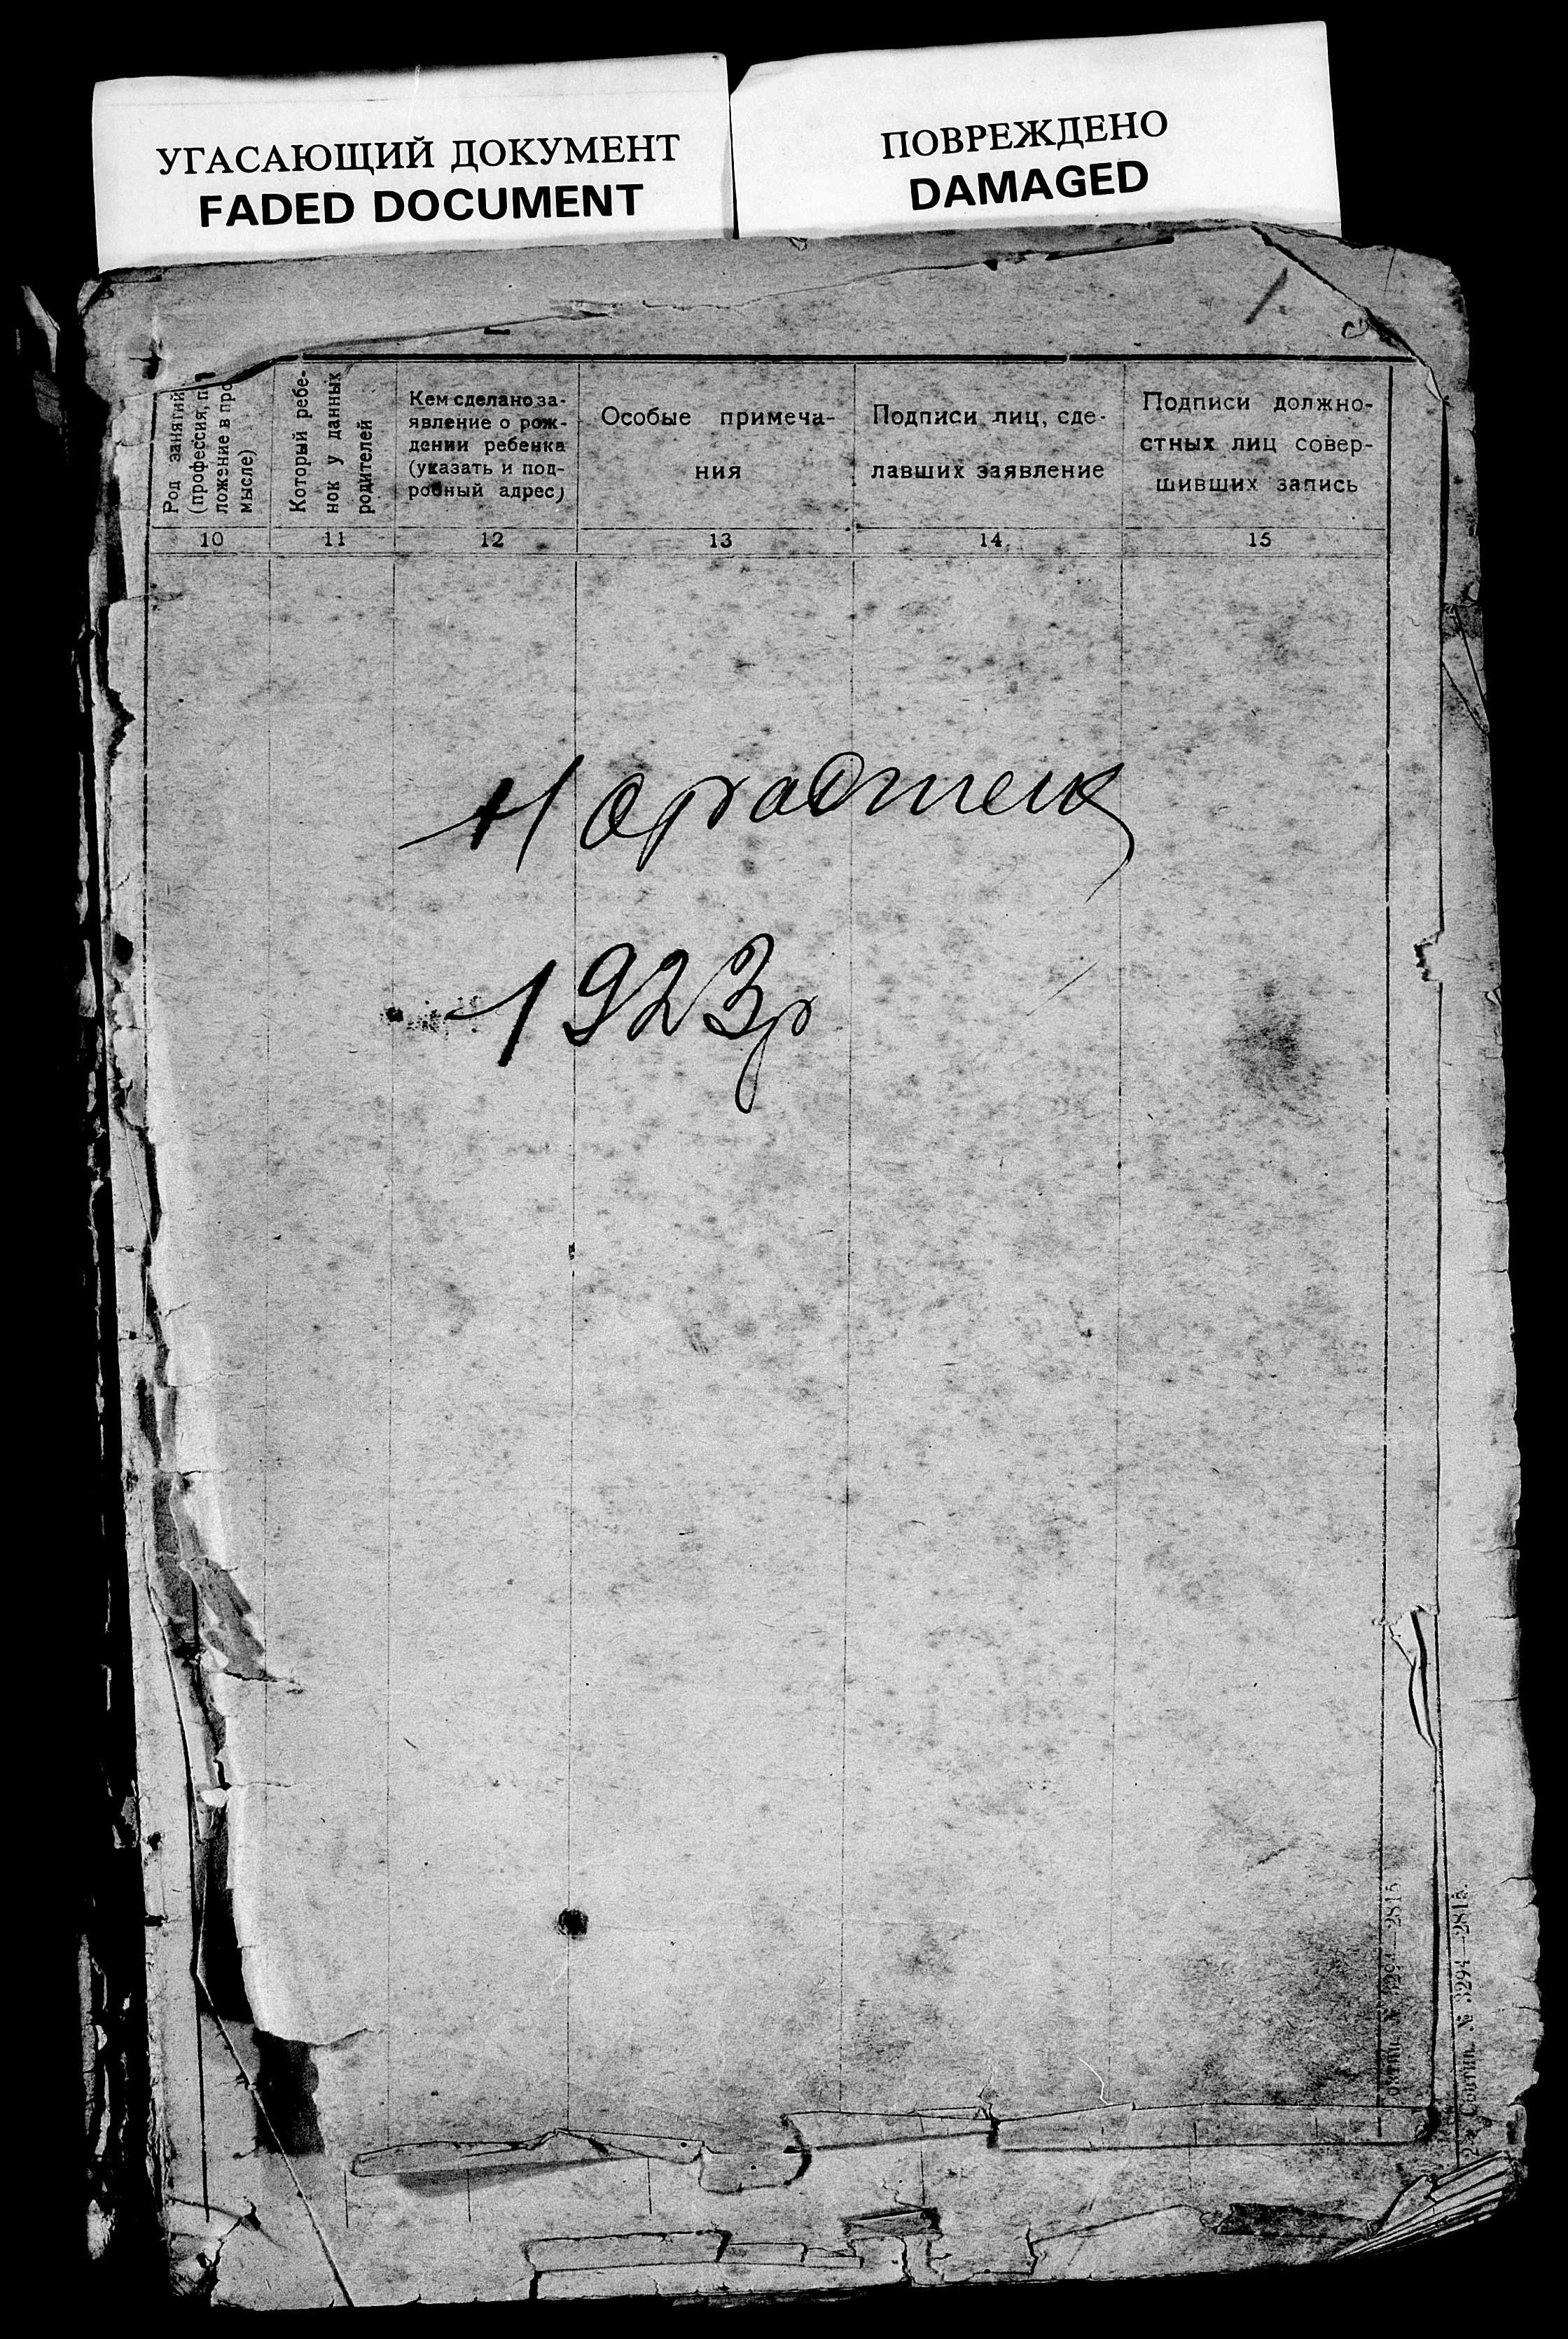 УГАСАЮЩИЙ ДОКУМЕНТ
FADED DOCUMENT
ПОВРЕЖДЕНО
DAMAGED
Род занятий
(профессия, п
ложение в про
мысле)
Который ребе-
нок у данных
родителей
Кем сделано за-
явление о рож-
дении ребенка
(указать и под-
робный адрес)
Особые примеча-
ния
Подписи лиц, сде-
лавших заявление
Подписи должно-
стных лиц совер-
шивших запись
10 11 12 13 14 15
1923р
№ 3294—2815
№ 3294—2815.